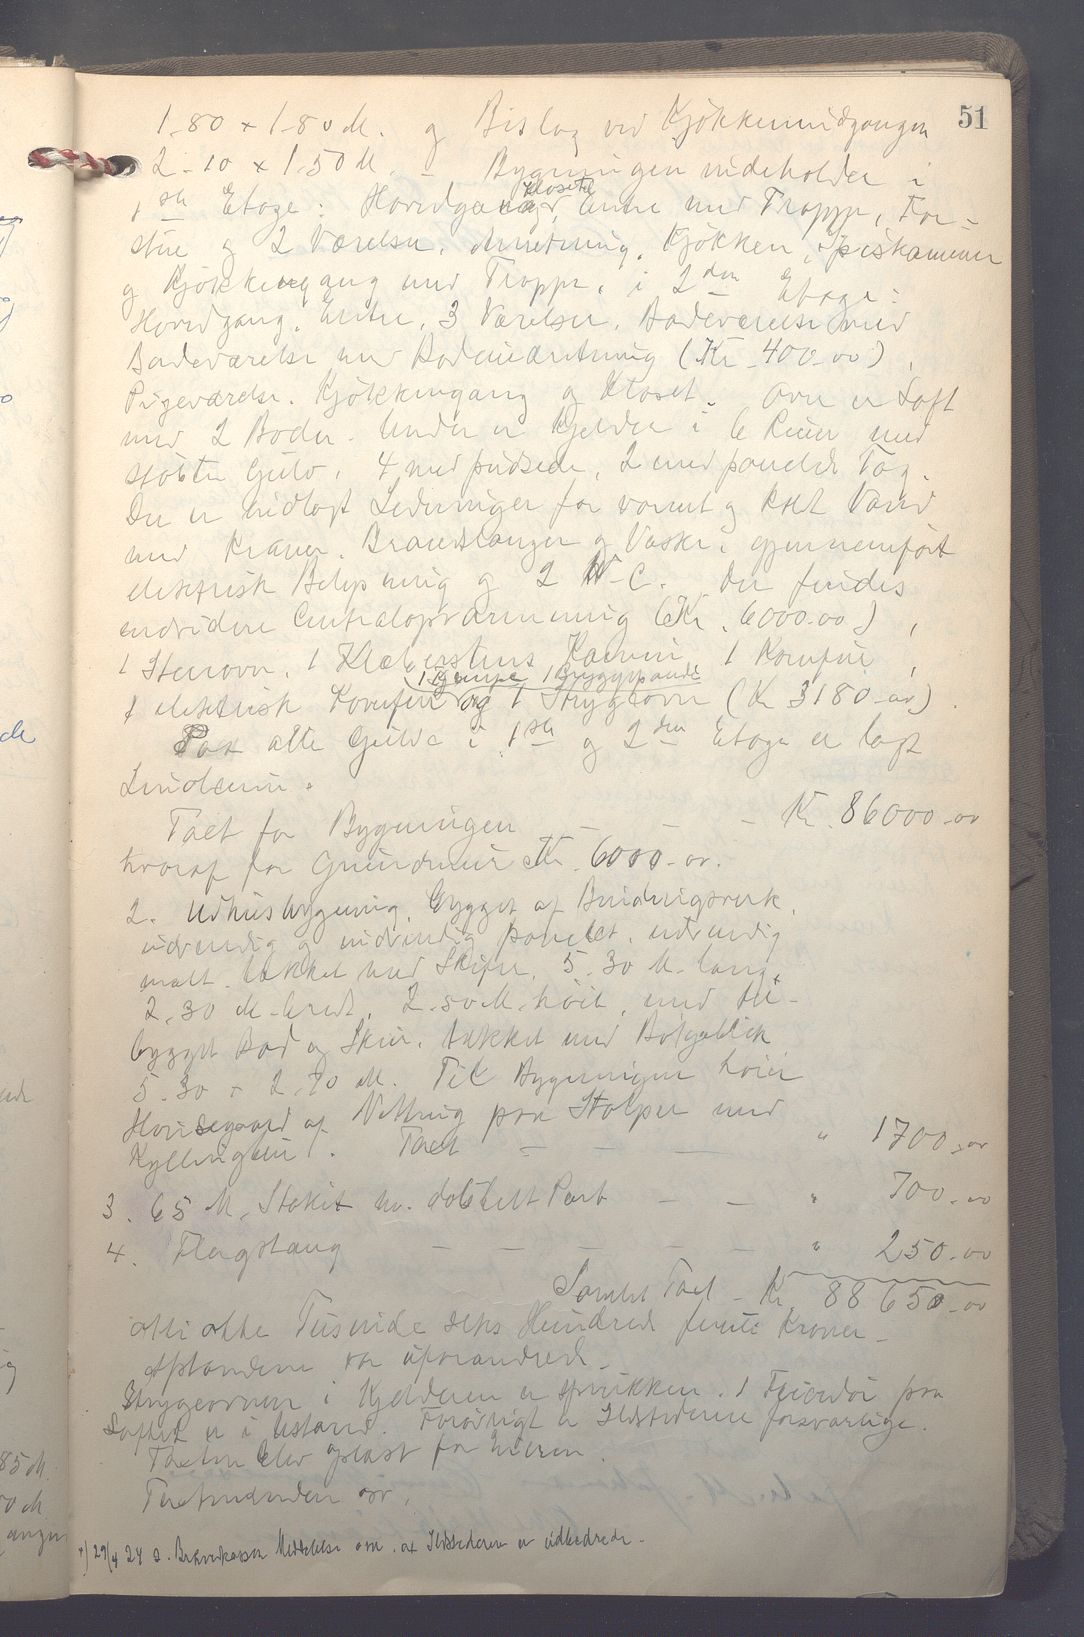 51
1-80 x 1-80 M. og Bislag ved Kjökkenindgangen
2-10 x 1-50 M. - Bygningen indeholder i
1ste Etage: Hovedgang, Kloset, Entre med Trappe, For-
stue og 2 Værelser, Anretning, Kjökken, Spiskammer
og Kjökkengang med Trappe, i 2den Etage:
Hovedgang, Entre, 3 Værelser, Badeværelse med
Badeværelse med Badeindretning (Kr. 400-00),
Pigeværelse, Kjökkengang og Kloset. Over er Loft
med 2 Boder. Under er Kjelder i 6 Rum med
stöbte Gulv, 4 med pudsede, 2 med panelet Tag.
Der er indlagt Ledninger for varmt og kolt Vand
med Kraner, Brandslanger og Vaske, gjennemfört
elektrisk Belysning og 2 W-C. Der findes
endvidere Centralopvarmning (Kr. 6000-00),
1 Stenovn, 1 Klæberstens Kamin, 1 Komfur,
1 Grupe 1 Bryggepande
1 elektrisk Komfur og 1 Strygeovn (Kr 3180-00).
Paa alle Gulve i 1ste og 2den Etage er lagt
Linoleum.
Taxt for Bygningen - - - Kr. 86000-00
hvoraf for Grundmur Kr. 6000-00.
2. Udhusbygning, bygget af Bindingsverk,
udvendig og indvendig panelet, udvendig
malt, tækket med Skifer, 5-30 M. lang,
2-30 M. bred, 2-50 M. höit, med til-
bygget Bod og Skur, tækket med Bölgeblik
5-30 x 2-70 M. Til Bygningen hörer
Hönsegaard af Netting paa Stolper med
Kyllinghus. Taxt - - - " 1700-00
3. 65 M. Stakit m. dobbelt Port - - " 700-00
4. Flagstang - - - - - " 250-00
Samlet Taxt - Kr. 88650-00
otti otte Tusinde seks Hundrede femti Kroner -
Afstandene er uforandret.
Strygeovnen i Kjelderen er sprukken. 1 Feierdör paa
Loftet er i Ustand. Forövrigt er Ildstederne forsvarlige.
Taxten blev oplæst for Eieren.
Taxtmændene
*) 29/4 24 s. Brkverkassen Meddelelse om, at Ildstederne er udbedrede.